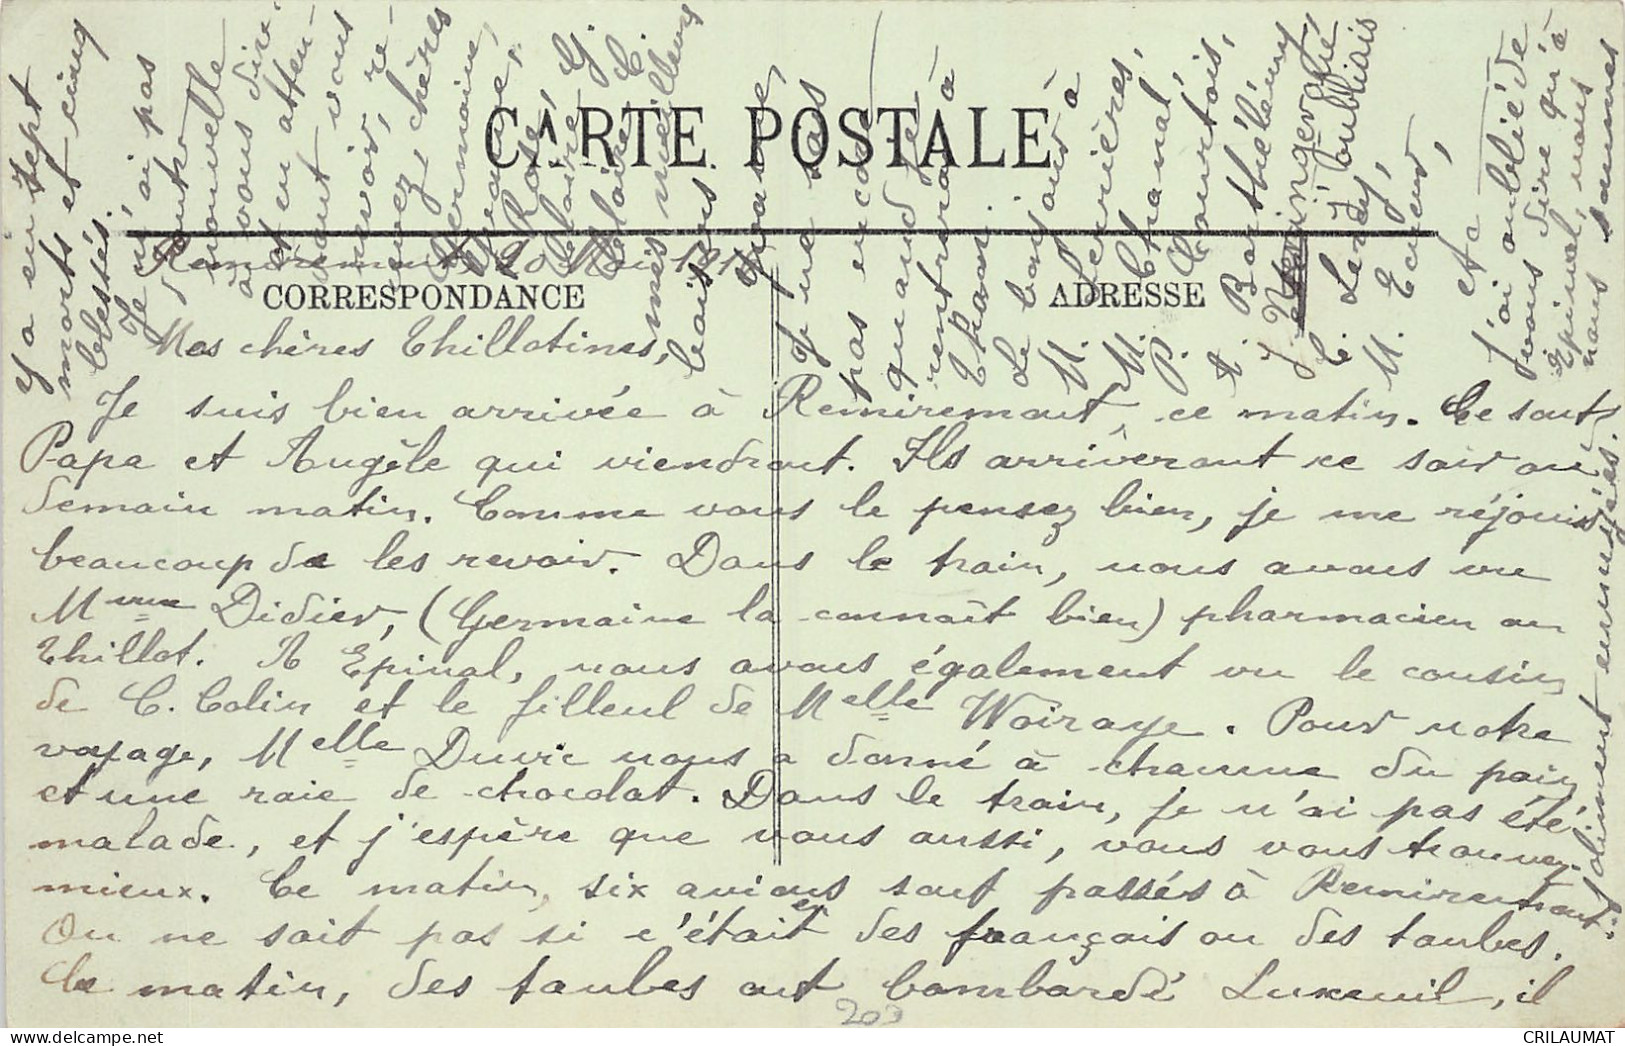 CARTE POSTALE
CORRESPONDANCE
ADRESSE
Remiremont, 20 Mai
Mes chères Thillotines,
Je suis bien arrivée à Remiremont, ce matin. Ce sont
Papa et Angèle qui viendront. Ils arriveront ce soir ou
demain matin. Comme vous le pensez bien, je me réjouis
beaucoup de les revoir. Dans le train, nous avons vu
Mme Didier, (Germaine la connaît bien) pharmacien au
Thillot. A Epinal, nous avons également vu le cousin
de C. Colin et le filleul de Melle Woiraye. Pour notre
voyage, Melle Duvic nous a donné à chacune du pain
et une raie de chocolat. Dans le train, je n'ai pas été
malade, et j'espère que vous aussi, vous vous trouvez
mieux. Ce matin, six avions sont passés à Remiremont.
On ne sait pas si c'était des français ou des taubes.
Ce matin, des taubes ont bombardé Luxeuil, il
y a eu sept
morts et cinq
blessés.
Je n'ai pas
d'autre
nouvelle
à vous dire.
et en atten-
dant vous
revoir, re-
cevez, chères
Germaine,
Rose, G.
Claire
Claire C.
mes meilleurs
baisers
Yvonne
Je ne sais
pas encore
quand je
rentrerai à
Le bonjour à
M. Ferrières,
M. Chanal,
P. Courtois,
A. Barthélémy
C. Lendy, J'oubliais
M. Ecurd,
J'ai oublié de
vous dire qu'à
Epinal, nous
nous sommes
joliment ennuyées.
203
CRILAUMAT